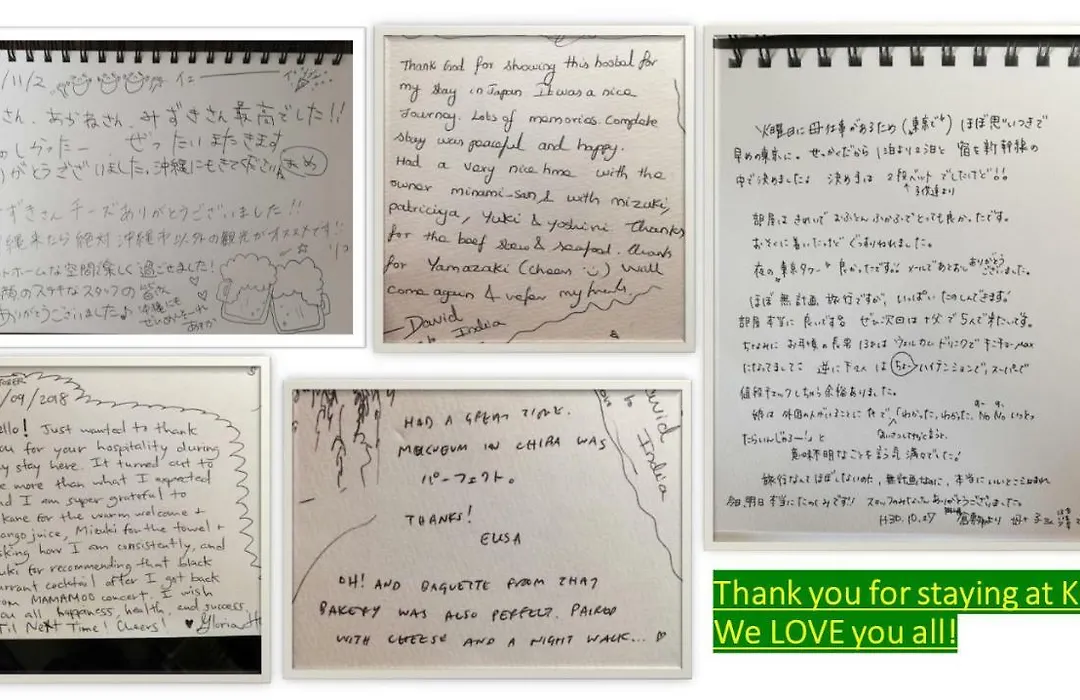 /11/2
さん、あかねさん、みずきさん最高でした!!
のしかったー ぜったいまたきます
がとうございました。沖縄にもきて下さい
ずきさん チーズありがとうございました!!
縄来たら絶対 沖縄市以外の観光がオススメです!!
ットホームな空間で楽しく過ごせました!
顔のステキなスタッフの皆さん
ありがとうございました♪
沖縄にも
Thank God for showing this hostel for
my stay in Japan It was a nice
Journey. Lots of memories. Complete
stay was peaceful and happy.
Had a very nice time with the
owner minami-san & with mizuki,
patriciya, Yuki & yoshini Thanks
for the beef stew & seafood. thanks
for Yamazaki (cheers :) Will
come again & refer my friends.
- David
India
火曜日に母仕事があるため(東京で) ほぼ思いつきで
早めの東京に。せっかくだから 1泊より2泊と 宿を新幹線の
中で決めましたよ 決め手は 2段ベットでしたけど!!
子供達より
部屋はきれいで おふとんふかふかでとっても良かったです。
おそくに着いたけど ぐっすりねれました。
夜の東京タワーも 良かったです!!
ありがとう
ございました。
ほぼ無計画 旅行ですが、いっぱい たのしんできます!
部屋本当に 良いです
ぜひ次回は +父で 5人で来たいです。
ウェルカムドリンクで
MAX
逆に下2人は ちょーハイテンションで、スーパーで
値段チェックしちゃう余裕ありました。
「わかった、わかった、No No いっとゃ
たらいいんじゃろー!」と
意味不明なことを言う
旅行なんてほぼしないのに、無計画なのに、本当にいいとこに泊まれ
今日、明日 本当にたのしみです!! スタッフのみなさん ありがとうございました。
H30.10.27
OCTOBER
/09/2018
ello! Just wanted to thank
ou for your hospitality during
y stay here. It turned out to
e more than what I expected
nd I am super grateful to
kane for the warm welcome +
ango juice, Mizuki for the towel +
sking how I am consistently, and
uki for recommending that black
urrant cocktail after I got back
rom MAMAMOO concert. I wish
ou all happiness, health, and success.
til Next Time! Cheers! ♥ Gloria
HAD A GREAT TIME.
IN CHIBA WAS
パーフェクト。
THANKS!
ELISA
OH! AND BAGUETTE FROM THAT
BAKERY WAS ALSO PERFECT. PAIRED
WITH CHEESE AND A NIGHT WALK... ♡
David
India
Thank you for staying at K
We LOVE you all!